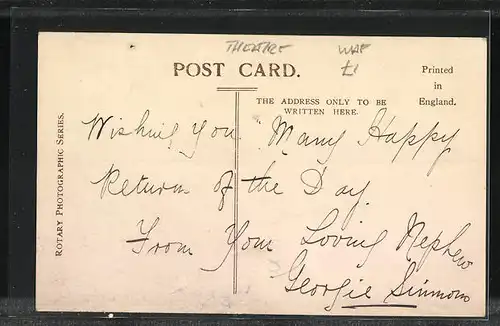 THEATRE
£1
POST CARD.
Printed
in
England.
THE ADDRESS ONLY TO BE
WRITTEN HERE.
ROTARY PHOTOGRAPHIC SERIES.
Wishing you Many Happy
Return of the Day
From Your Loving Nephew
Georgie Simmons